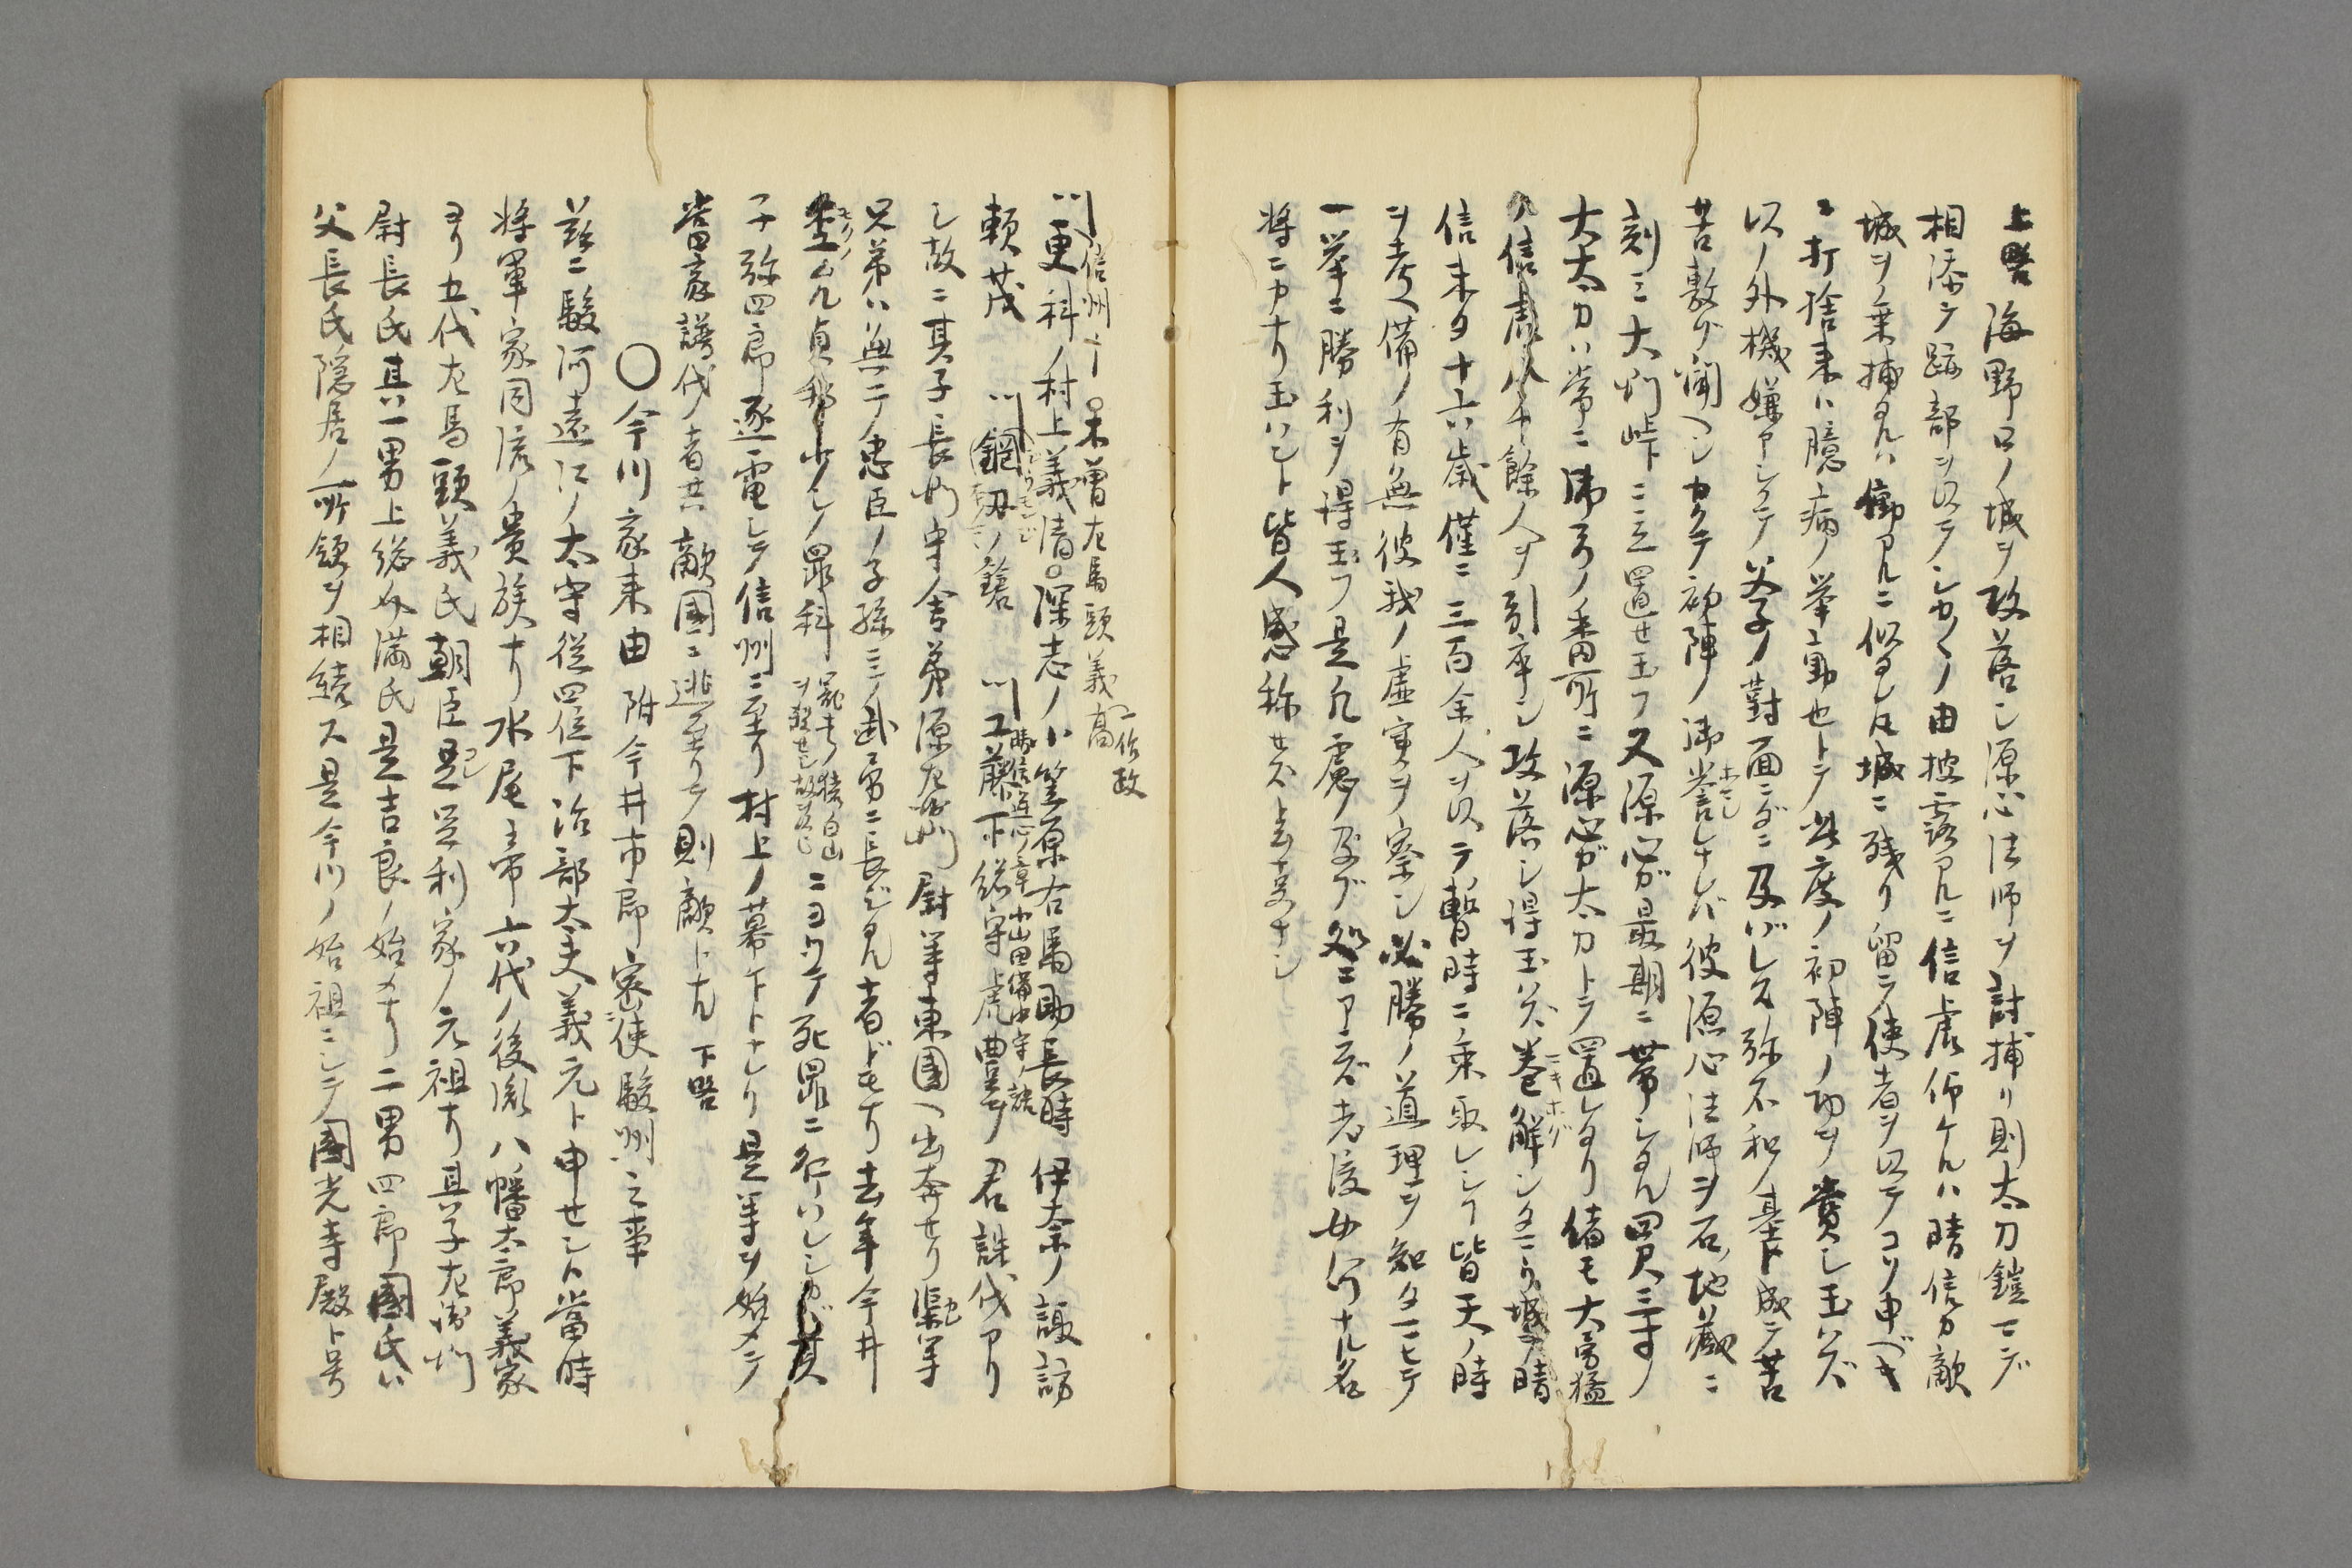 上略 海野口ノ城ヲ攻落シ源心法師ヲ討捕リ則太刀鎧マデ
相添テ跡部ヲ以テシカ〱ノ由披露アルニ信虎仰ケルハ晴信カ敵
城ヲ乗捕タルハ働アルニ似タレ𪜈城ニ残リ留テ使者ヲ以テコソ申ベキ
ニ打捨来ハ臆病ノ挙動也トテ此度ノ初陣ノ功ヲ賞シ玉ハズ
以ノ外機嫌アシクテ父子ノ對面ニダニ及バレズ弥不和ノ基ト成テ苦
苦敷ゾ聞ヘシカクテ初陣ノ御誉レナレバ彼源心法師ヲ石地蔵ニ
刻ミ大門峠ニ立置セ玉フ又源心ガ最期ニ帯シタル四尺三寸ノ
大太刀ハ常ニ御弓ノ番所ニ源心ガ太刀トテ置レタリ偖モ大勇猛
ノ信虎八千餘人ヲ引率シ攻落シ得玉ハズ巻解シタマフ城ヲ晴
信未タ十六歳僅ニ三百余人ヲ以テ暫時ニ乗取レシハ皆天ノ時
ヲ考ヘ備ノ有無彼我ノ虚実ヲ察シ必勝ノ道理ヲ知タマヒテ
一挙ニ勝利ヲ得玉フ是凡慮ノ及ブ処ニアラズ老後如何ナル名
将ニカナリ玉ハント皆人感称セズト云コトナシ
信州ニ 木曽左馬頭義高 一作政
更科ノ村上義清 深志ノ小笠原右馬助長時 伊奈ノ諏訪
頼茂 鎧 工藤下総守虎豊ヲ 君誅伐アリ
シ故ニ其子長門守舎弟源左衛門尉等東国ヘ出奔セリ渠等
兄弟ハ無二ノ忠臣ノ子孫ニテ武勇ニ長ジタル者ドモナリ去年今井
ニヨツテ死罪ニ行ハレシカバ其
子弥四郎逐電シテ信州ニ至リ村上ノ幕下トナレリ是等ヲ始メテ
當家譜代ノ者共敵国ニ逃至リテ則敵トナル 下略
〇今川家来由 附今井市郎密使駿州之事
茲ニ駿河遠江ノ太守従四位下治部太夫義元ト申セシハ當時
将軍家同流ノ貴族ナリ水尾帝六代ノ後胤八幡太郎義家
ヨリ五代左馬頭義氏朝臣是足利家ノ元祖ナリ其子左衛門
尉長氏其一男上総介満氏是吉良ノ始メナリ二男四郎國氏ハ
父長氏隠居ノ所領ヲ相続ス是今川ノ始祖ニシテ國光寺殿ト号